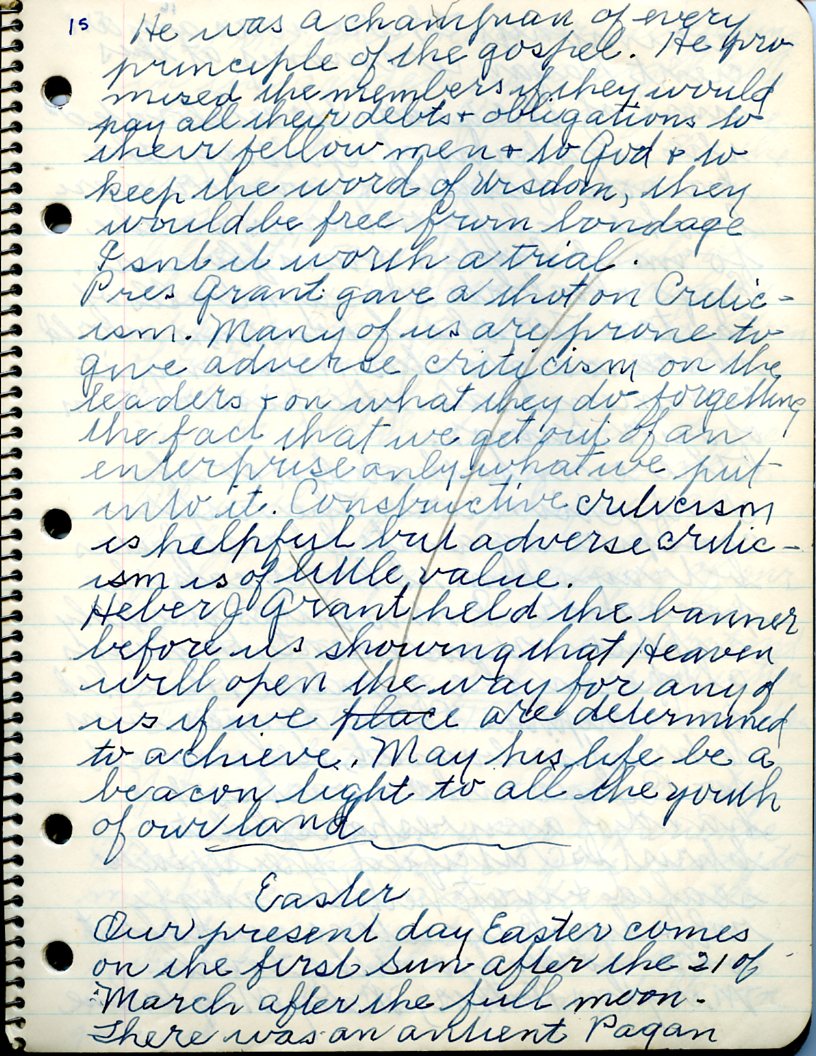 15
He was a champian of every
principle of the gospel. He pro
mized the members if they would
pay all their debts + obligations to
their fellow men + to God + to
keep the word of Wisdom, they
would be free from bondage
Isnt it worth a trial.
Pres Grant gave a thot on Critic-
ism. Many of us are prone to
give adverse criticism on the
leaders + on what they do forgetting
the fact that we get out of an
enterprise only what we put
into it. Constructive criticism
is helpful but adverse critic-
ism is of little value.
Heber J Grant held the banner
before us showing that Heaven
will open the way for any of
us if we place are determined
to achieve. May his life be a
beacon light to all the youth
of our land
Easter
Our present day Easter comes
on the first Sun after the 21 of
March after the full moon.
There was an antient Pagan